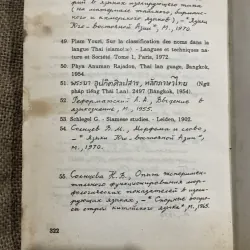 рий в языках изолирующего типа
(на материале тайского, бирман-
ского и кхмерского языков), - "Языки
Юго-восточной Азии", М., 1970.
49. Plam Youri, Sur la classification des noms dans la
langue Thai (siamois) – Langues et techniques na-
ture et Société. Tomo I, Paris, 1972.
50. Phya Anuman Rajadon, Thai lan guage, Bangkok,
1954.
51. พระยา อุปกิตศิลปสาร, หลักภาษาไทย (Ngữ
pháp tiếng Thái Lan). 2497 (Bangkok, 1954).
52. Реформатский А. А., Введение в
языкозн., М., 1960.
53. Schlegel G. - Siamese studies. - Leiden, 1902.
54. Солнцев В. М., Морфема и слово,
- "Языки Юго-Восточной Азии",
М., 1970.
55. Солнцева Н. В., Опыт эксперимен-
тального функционирования мор-
фологических показателей в изо-
лирующих языках, - "Спорные вопро-
сы строя китайского языка", М., 1965.
322